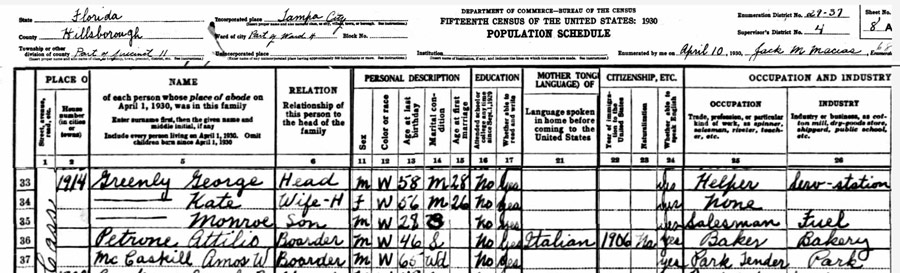 State Florida
County Hillsborough
Township or other division of county Part of Precinct 11
Incorporated place Tampa City
Ward of city Part of Ward 4 Block No.
Unincorporated place
Institution
DEPARTMENT OF COMMERCE—BUREAU OF THE CENSUS
FIFTEENTH CENSUS OF THE UNITED STATES: 1930
POPULATION SCHEDULE
Enumeration District No. 29-37
Supervisor's District No. 4
Sheet No. 8 A
Enumerated by me on April 10, 1930, Jack M Macias
PLACE O
NAME
RELATION
PERSONAL DESCRIPTION
EDUCATION
MOTHER TONG
LANGUAGE) OF
CITIZENSHIP, ETC.
OCCUPATION AND INDUSTRY
Street, avenue, road, etc.
House number (in cities or towns)
of each person whose place of abode on April 1, 1930, was in this family
Enter surname first, then the given name and middle initial, if any
Include every person living on April 1, 1930. Omit children born since April 1, 1930
Relationship of this person to the head of the family
Sex
Color or race
Age at last birthday
Marital condition
Age at first marriage
Language spoken in home before coming to the United States
Naturalization
OCCUPATION
Trade, profession, or particular kind of work, as spinner, salesman, riveter, teacher, etc.
INDUSTRY
Industry or business, as cotton mill, dry-goods store, shipyard, public school, etc.
1 2 5 6 11 12 13 14 15 16 17 21 22 23 24 25 26
33 1914 Greenly George Head M W 58 M 28 No Yes Yes Helper Serv-station
34 Kate Wife-H F W 56 M 26 No Yes Yes None
35 Monroe Son M W 28 S No Yes Yes Salesman Fuel
36 Petrone Attilio Boarder M W 46 S No Yes Italian 1906 Na Yes Baker Bakery
37 Mc Caskill Amos W Boarder M W 65 Wd No Yes Yes Park Tender Park
Cass